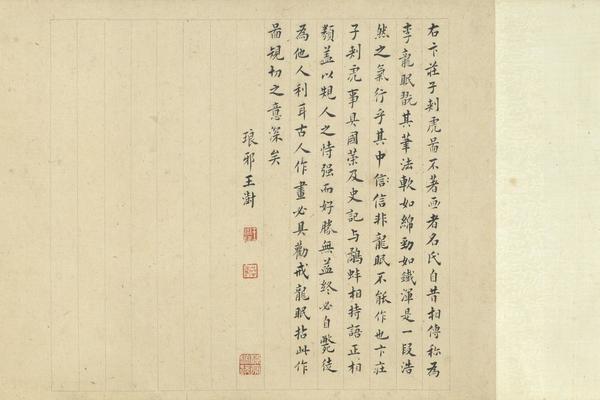 右卞莊子刺虎啚不著画者名氏自昔相傳称為
李龍眠氍其筆法軟如綿勁如鐵渾是一段浩
然之氣行乎其中信信非龍眠不能作也卞莊
子刺虎事具國策及史記与鷸蚌相持語正相
類盖以規人之恃强而好勝無益終必自斃徒
為他人利耳古人作畫必具勸戒龍眠拈此作
啚規切之意深矣
琅邪王澍